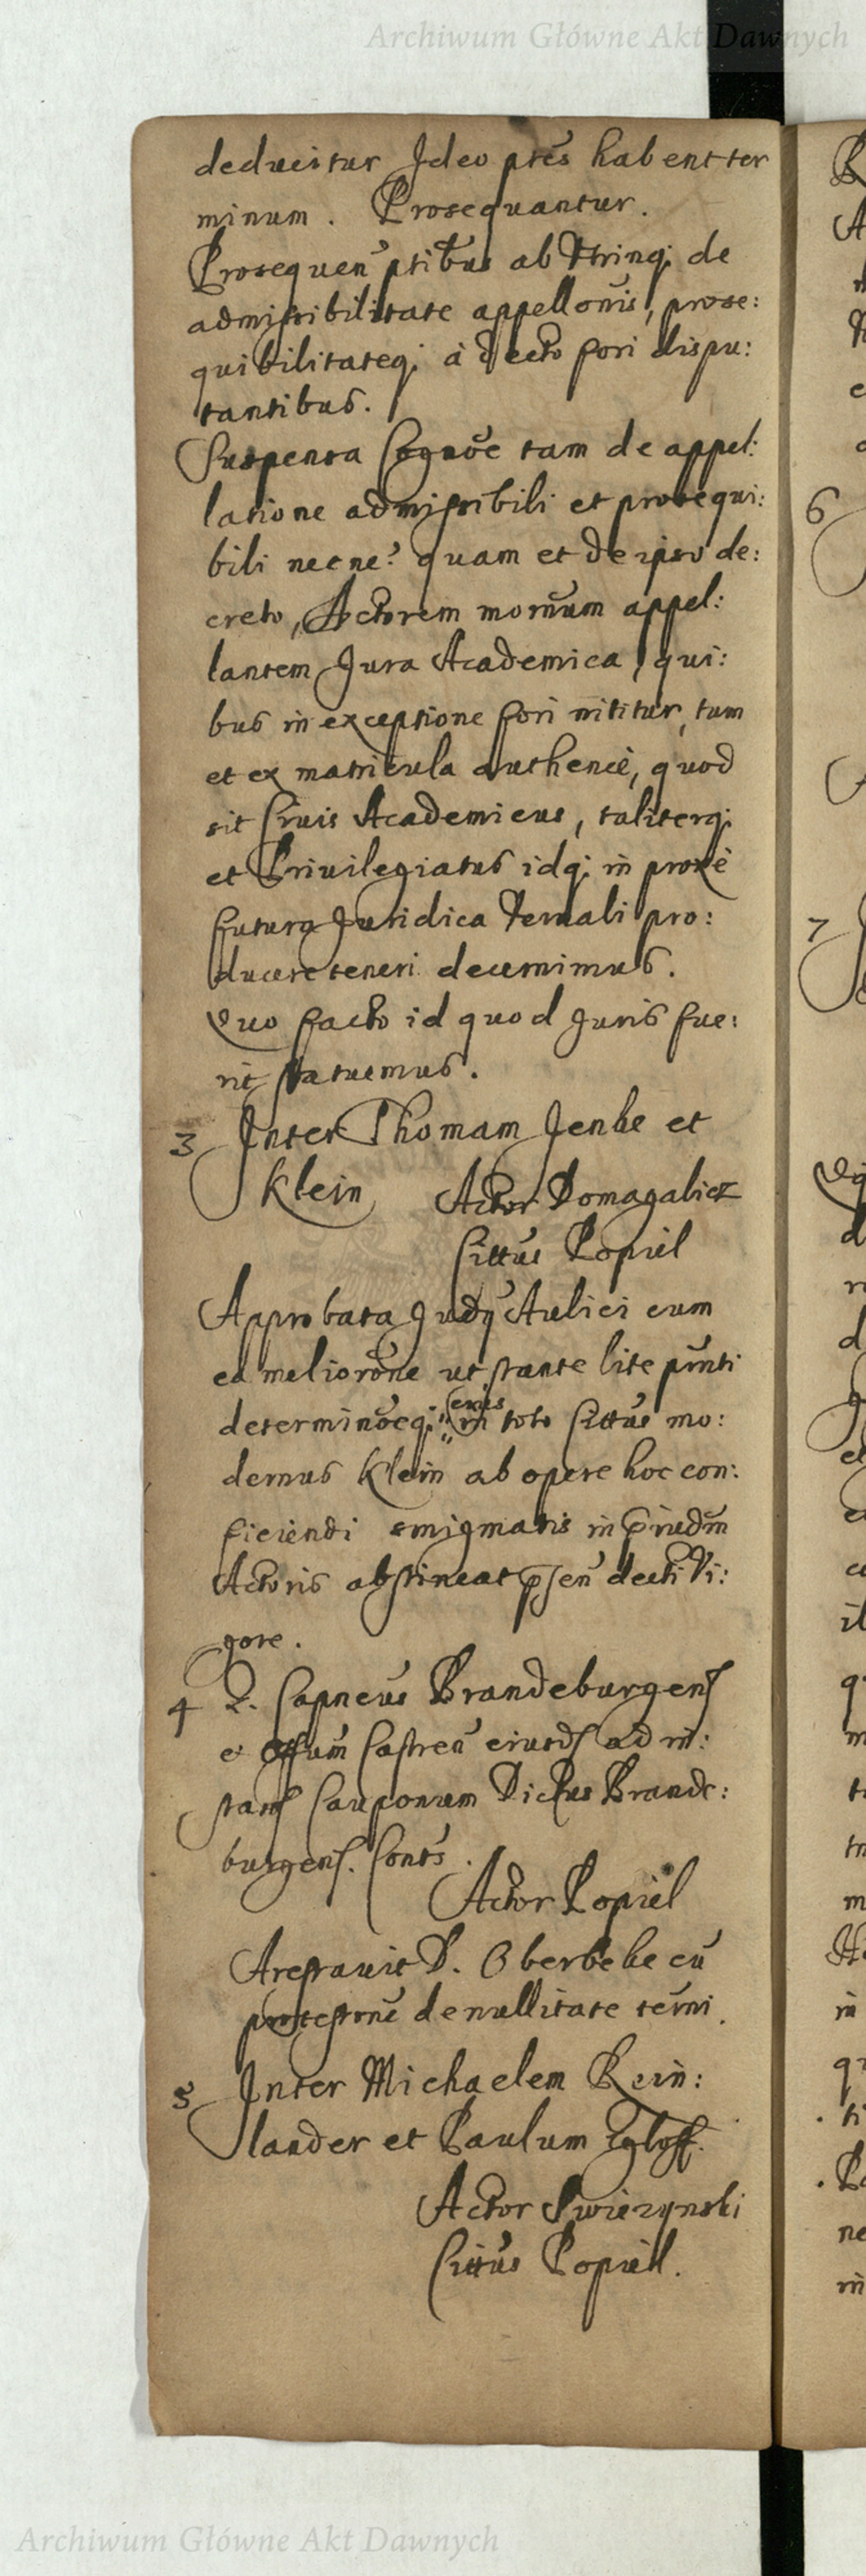 Archiwum Główne Akt Dawnych
deducitur Ideo ptes habent ter
minum. Prosequantur.
Prosequen ptibus ab utrinq; de
admissibilitate appellonis, prose:
quibilitateq; à decto fori dispu:
tantibus.
Suspensa Cognõe tam de appel:
latione admissibili et prosequi:
bili necne? quam et de ipso de:
creto, Actorem mornum appel:
lantem Jura Academica, qui:
bus in exceptione fori nititur, tum
et ex matricula authence, quod
sit Civis Academicus, taliterq;
et Privilegiatus idq; in proxè
futura Juridica Termali pro:
ducere teneri decernimus.
Quo facto id quod Juris fue:
rit statuemus.
3 Inter Thomam Jenke et
Klein Actor Domagalicz
Cittus Popiel
Approbata Judy Aulici cum
ea meliorõne ut stante lite pnti
determinõeq; in toto Cittus mo:
dernus Klein ab opere hoc con:
ficiendi smigmatis in priudm
Actoris abstineat psen decti Vi:
gore.
4 Capneus Brandeburgens
et Castren eiusd ad in:
stans Cauponum Dictus Brande:
burgens. Conts.
Actor Popiel
Arestavit D. Oberbeke cu
protestone de nullitate termi.
5 Inter Michaelem Rein:
lander et Paulum
Actor Swiezynski
Cittus Popiell.
6
7
Archiwum Główne Akt Dawnych